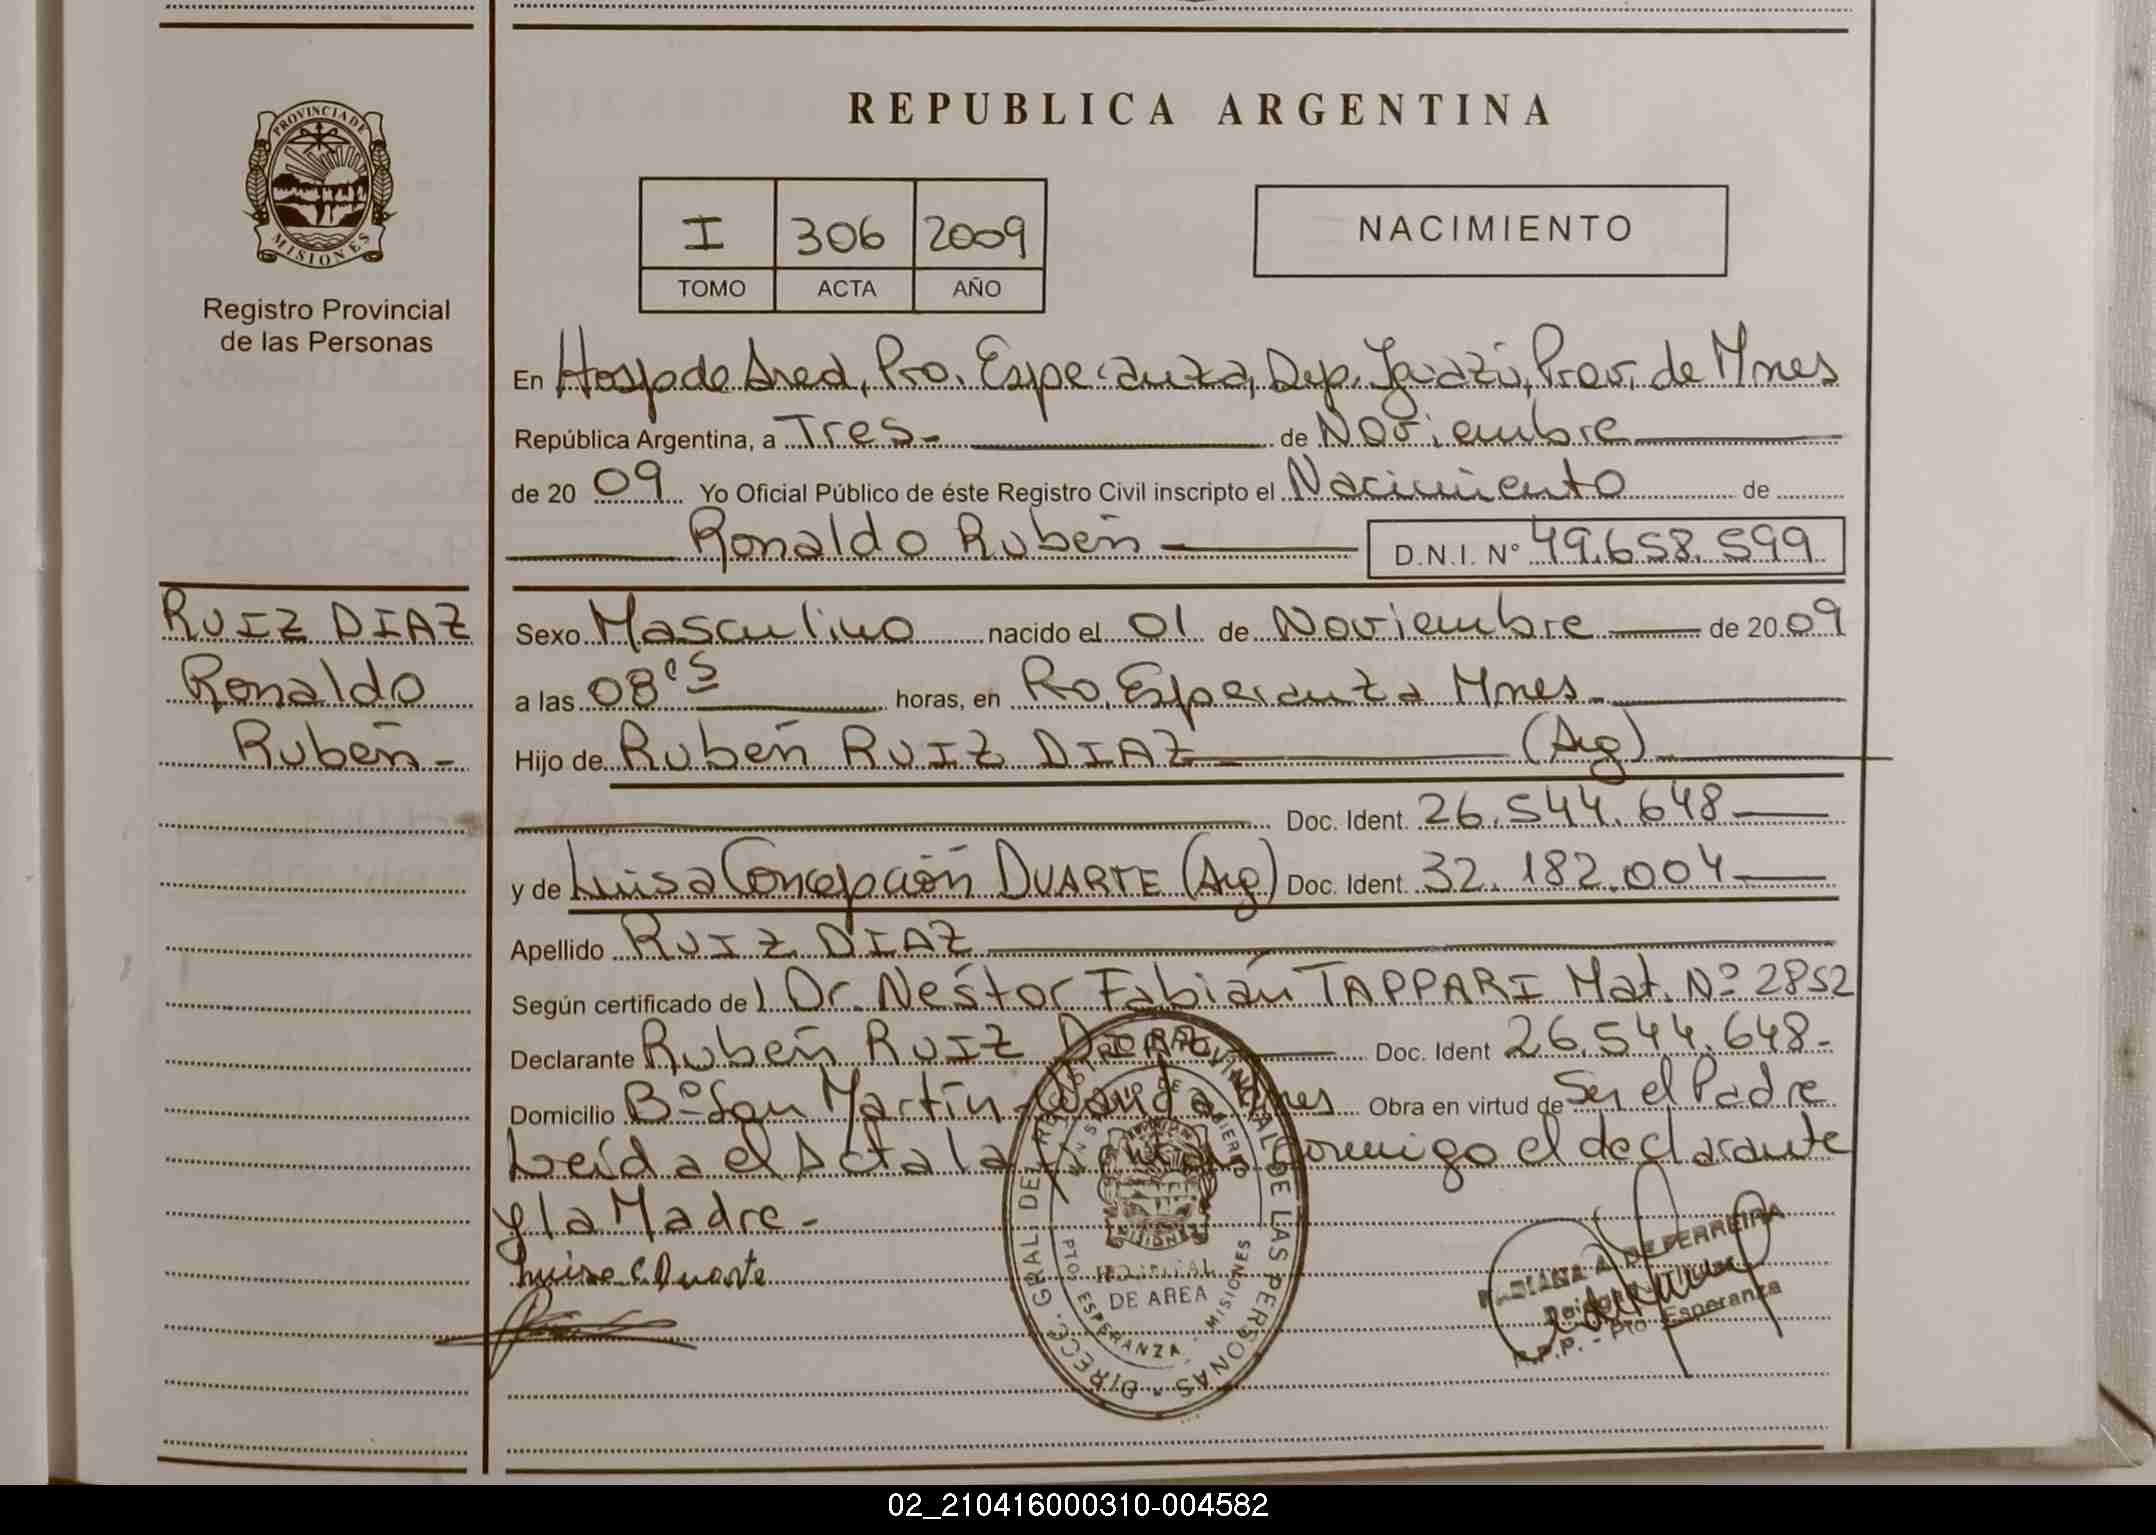 PROVINCIA DE
MISIONES
Registro Provincial
de las Personas
RUIZ DIAZ
Ronaldo
Rubén -
REPUBLICA ARGENTINA
I 306 2009
TOMO ACTA AÑO
NACIMIENTO
En Hosp de Area, Pto. Esperanza, Dep. Iguazú, Prov. de Mnes
República Argentina, a Tres - de Noviembre
de 20 09 Yo Oficial Público de éste Registro Civil inscripto el Nacimiento de
Ronaldo Rubén D.N.I. Nº 49.658.599
Sexo Masculino nacido el 01 de Noviembre de 20 09
a las 08 horas, en Pto. Esperanza Mnes -
Hijo de Rubén RUIZ DIAZ (Arg)
Doc. Ident. 26.544.648
y de Luisa Concepción DUARTE (Arg) Doc. Ident. 32.182.004
Apellido RUIZ DIAZ
Según certificado del Dr. Néstor Fabián TAPPARI Mat. Nº 2852
Declarante Rubén RUIZ DIAZ Doc. Ident 26.544.648 -
Domicilio Bº San Martín - Wanda Mnes Obra en virtud de Ser el Padre
Leída el Acta la firman Conmigo el declarante
y la Madre -
Luisa C Duarte
DIRECC. GRAL. DEL REGISTRO PROVINCIAL DE LAS PERSONAS
MINISTERIO DE GOBIERNO
MISIONES
HOSPITAL
DE AREA
PTO. ESPERANZA - MISIONES
FABIANA A. DE FERREIRA
R.P.P. - Pto Esperanza
02_210416000310-004582